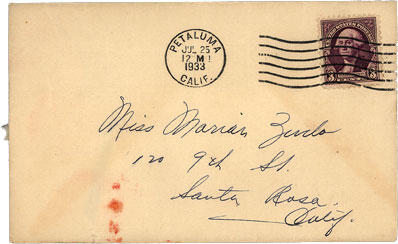 PETALUMA
JUL 25
12 M
1933
CALIF.
UNITED STATES POSTAGE
3 3
Miss Marian
120 9th St.
Santa Rosa
Calif.